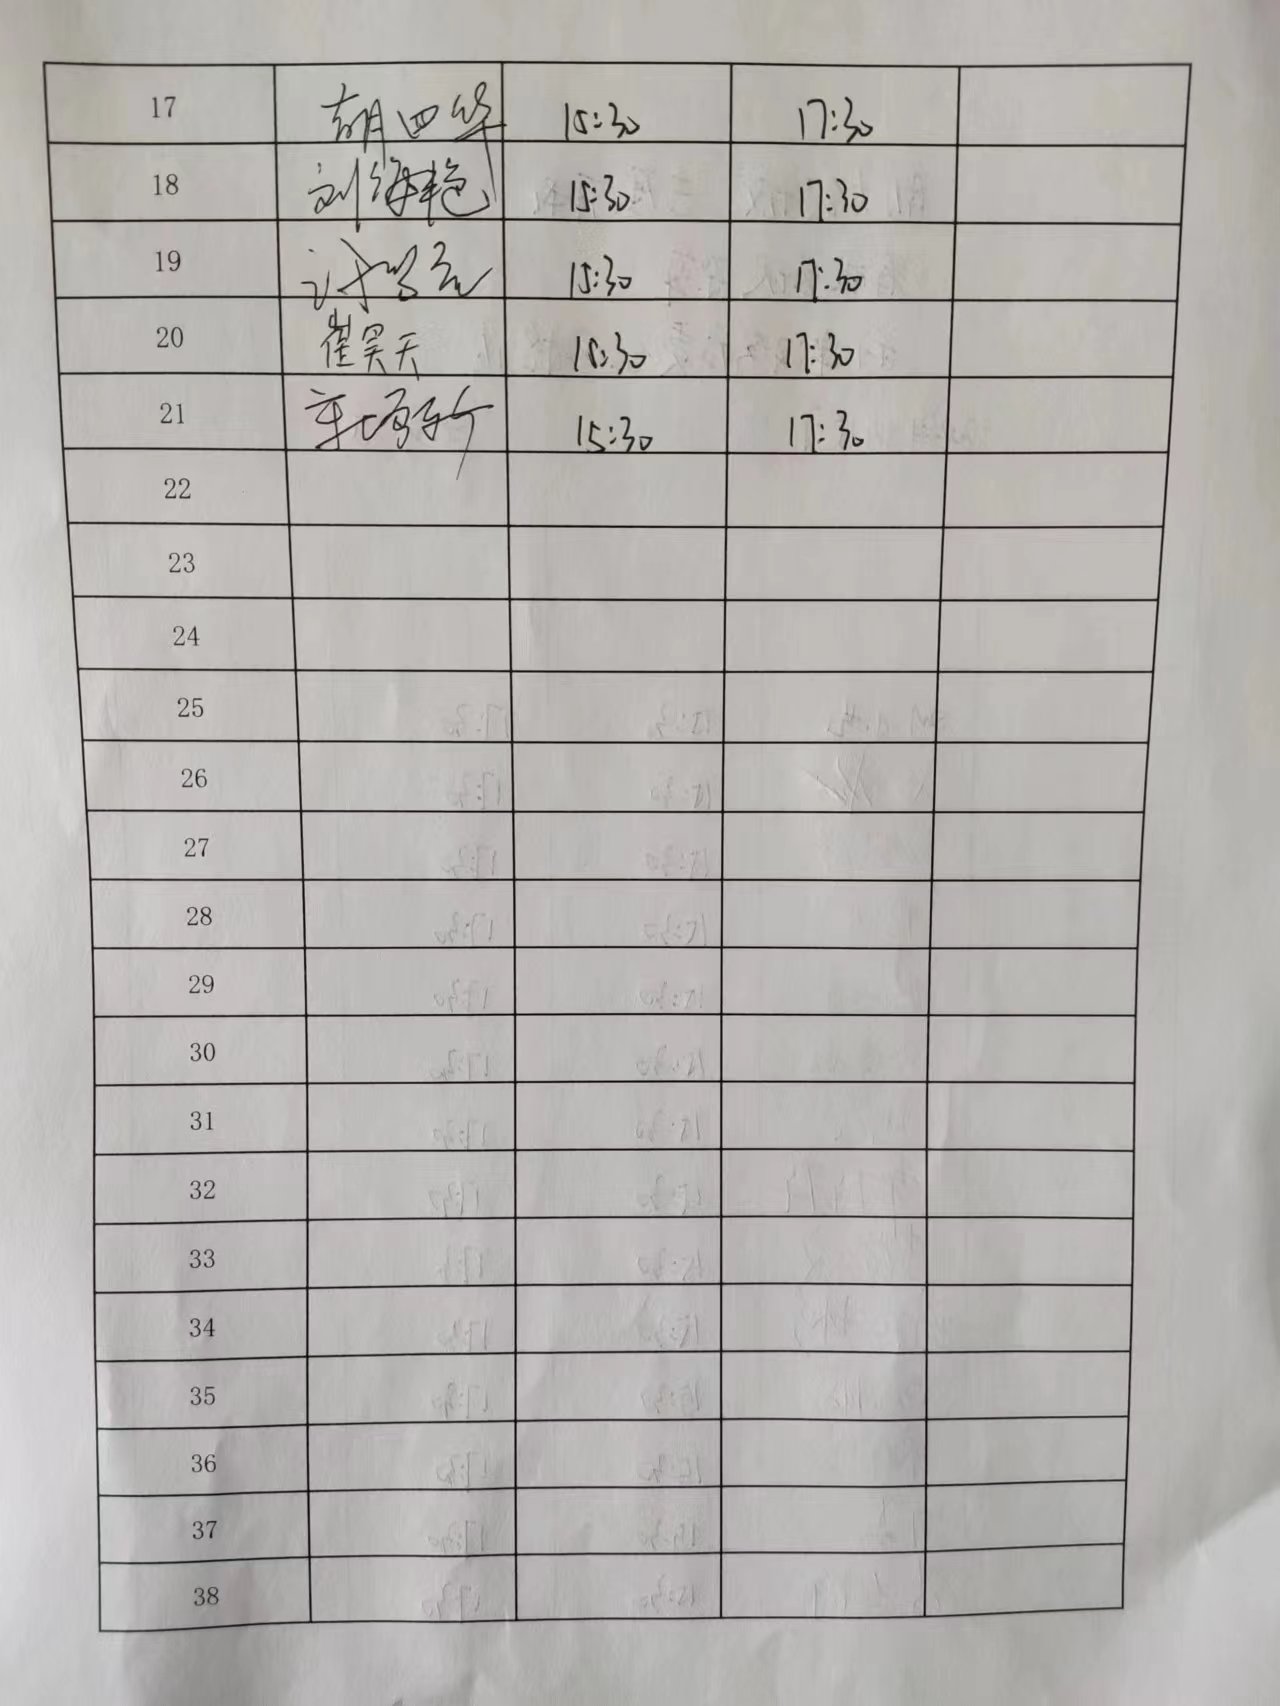 17 胡四华 15:30 17:30
18 刘海艳 15:30 17:30
19 15:30 17:30
20 崔昊天 15:30 17:30
21 15:30 17:30
22
23
24
25
26
27
28
29
30
31
32
33
34
35
36
37
38